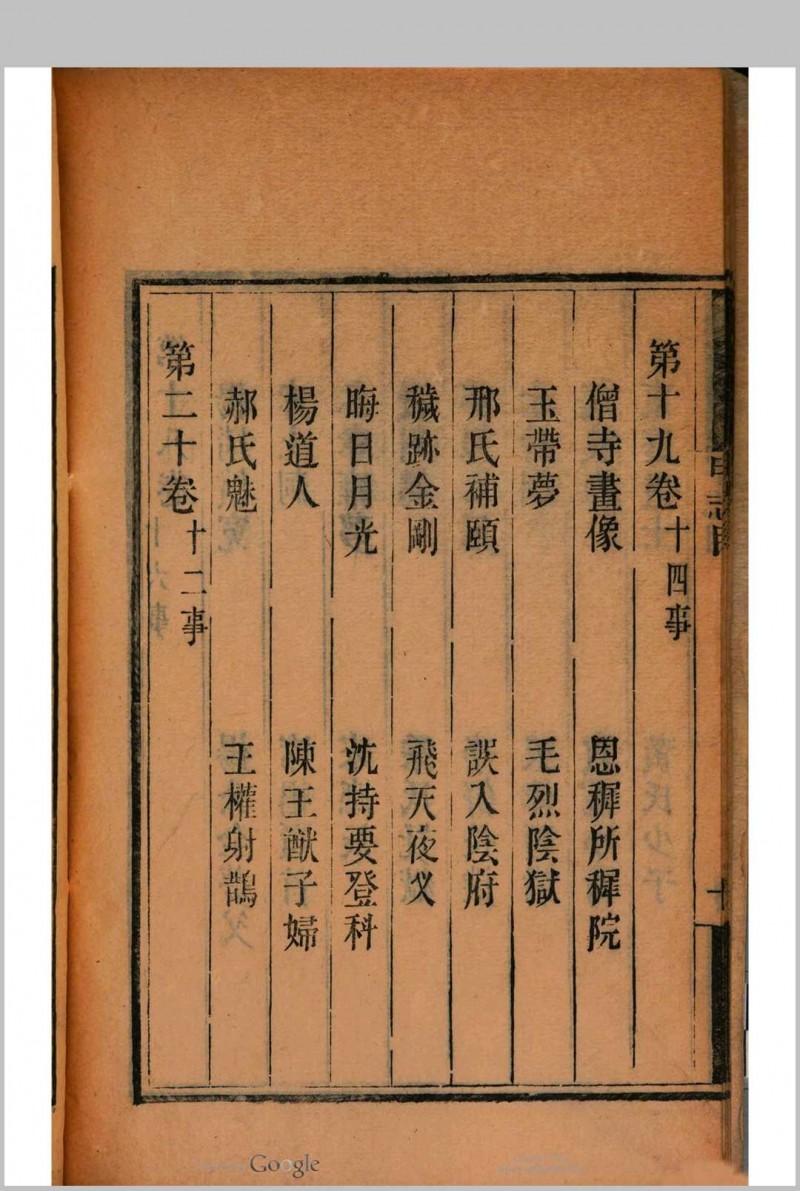 第十九卷十四事
僧寺畫像 恩穉所穉院
玉帶夢 毛烈陰獄
邢氏補頤 誤入陰府
穢跡金剛 飛天夜义
晦日月光 沈持要登科
楊道人 陳王猷子婦
郝氏魅 王權射鵲
第二十卷十二事
Google